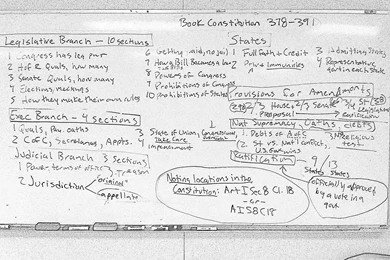 Book Constitution 378-391
Legislative Branch - 10 sections
1 Congress has leg pwr
2 H of R Quals, how many
3 Senate Quals, how many
4 Elections, meetings
5 How they make their own rules
6 Getting paid, no jail
7 How a Bill Becomes a law
8 Powers of Congress
9 Prohibitions of Congress
10 prohibitions of States
States
1 Full Faith + Credit
2 Immunities
3 Admitting States
4 Representative
gov't in each State
Provisions for Amendments
2/3 House 2/3 Senate
proposal
3/4 St (38)
Legislatures
ratification
Exec Branch - 4 sections
1 Quals, Pwr, oaths
2 C of C, Secretaries, Appts.
3 State of Union,
Take Care
4 impeachment
Nat Supremacy (Oaths, debts)
1. Debts of A of C
2 St. vs. Nat'l conflict,
U.S. wins
3 No religious
test
Judicial Branch 3 Sections
1 Power, terms of office
2 Jurisdiction
"original"
appellate
3. Treason
Ratification - 9/13
States
States
officially approved
by a vote in a
gov.
Noting locations in the
Constitution: Art I Sec 8 Cl. 18
- or -
A I S8 C18